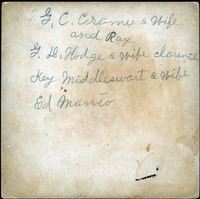 G. C. Cramer & Wife
and Ray
G. H. Hodge & wife clarence
Key Middleswart & wife
Ed Manto